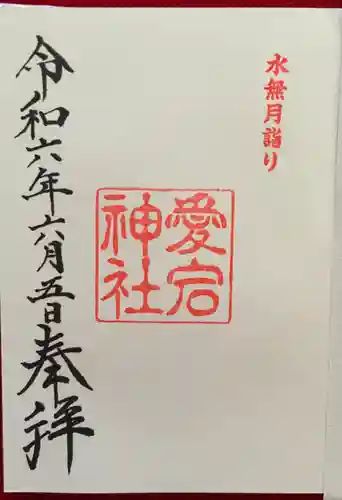 水無月詣り
愛宕
神社
令和六年六月五日奉拝